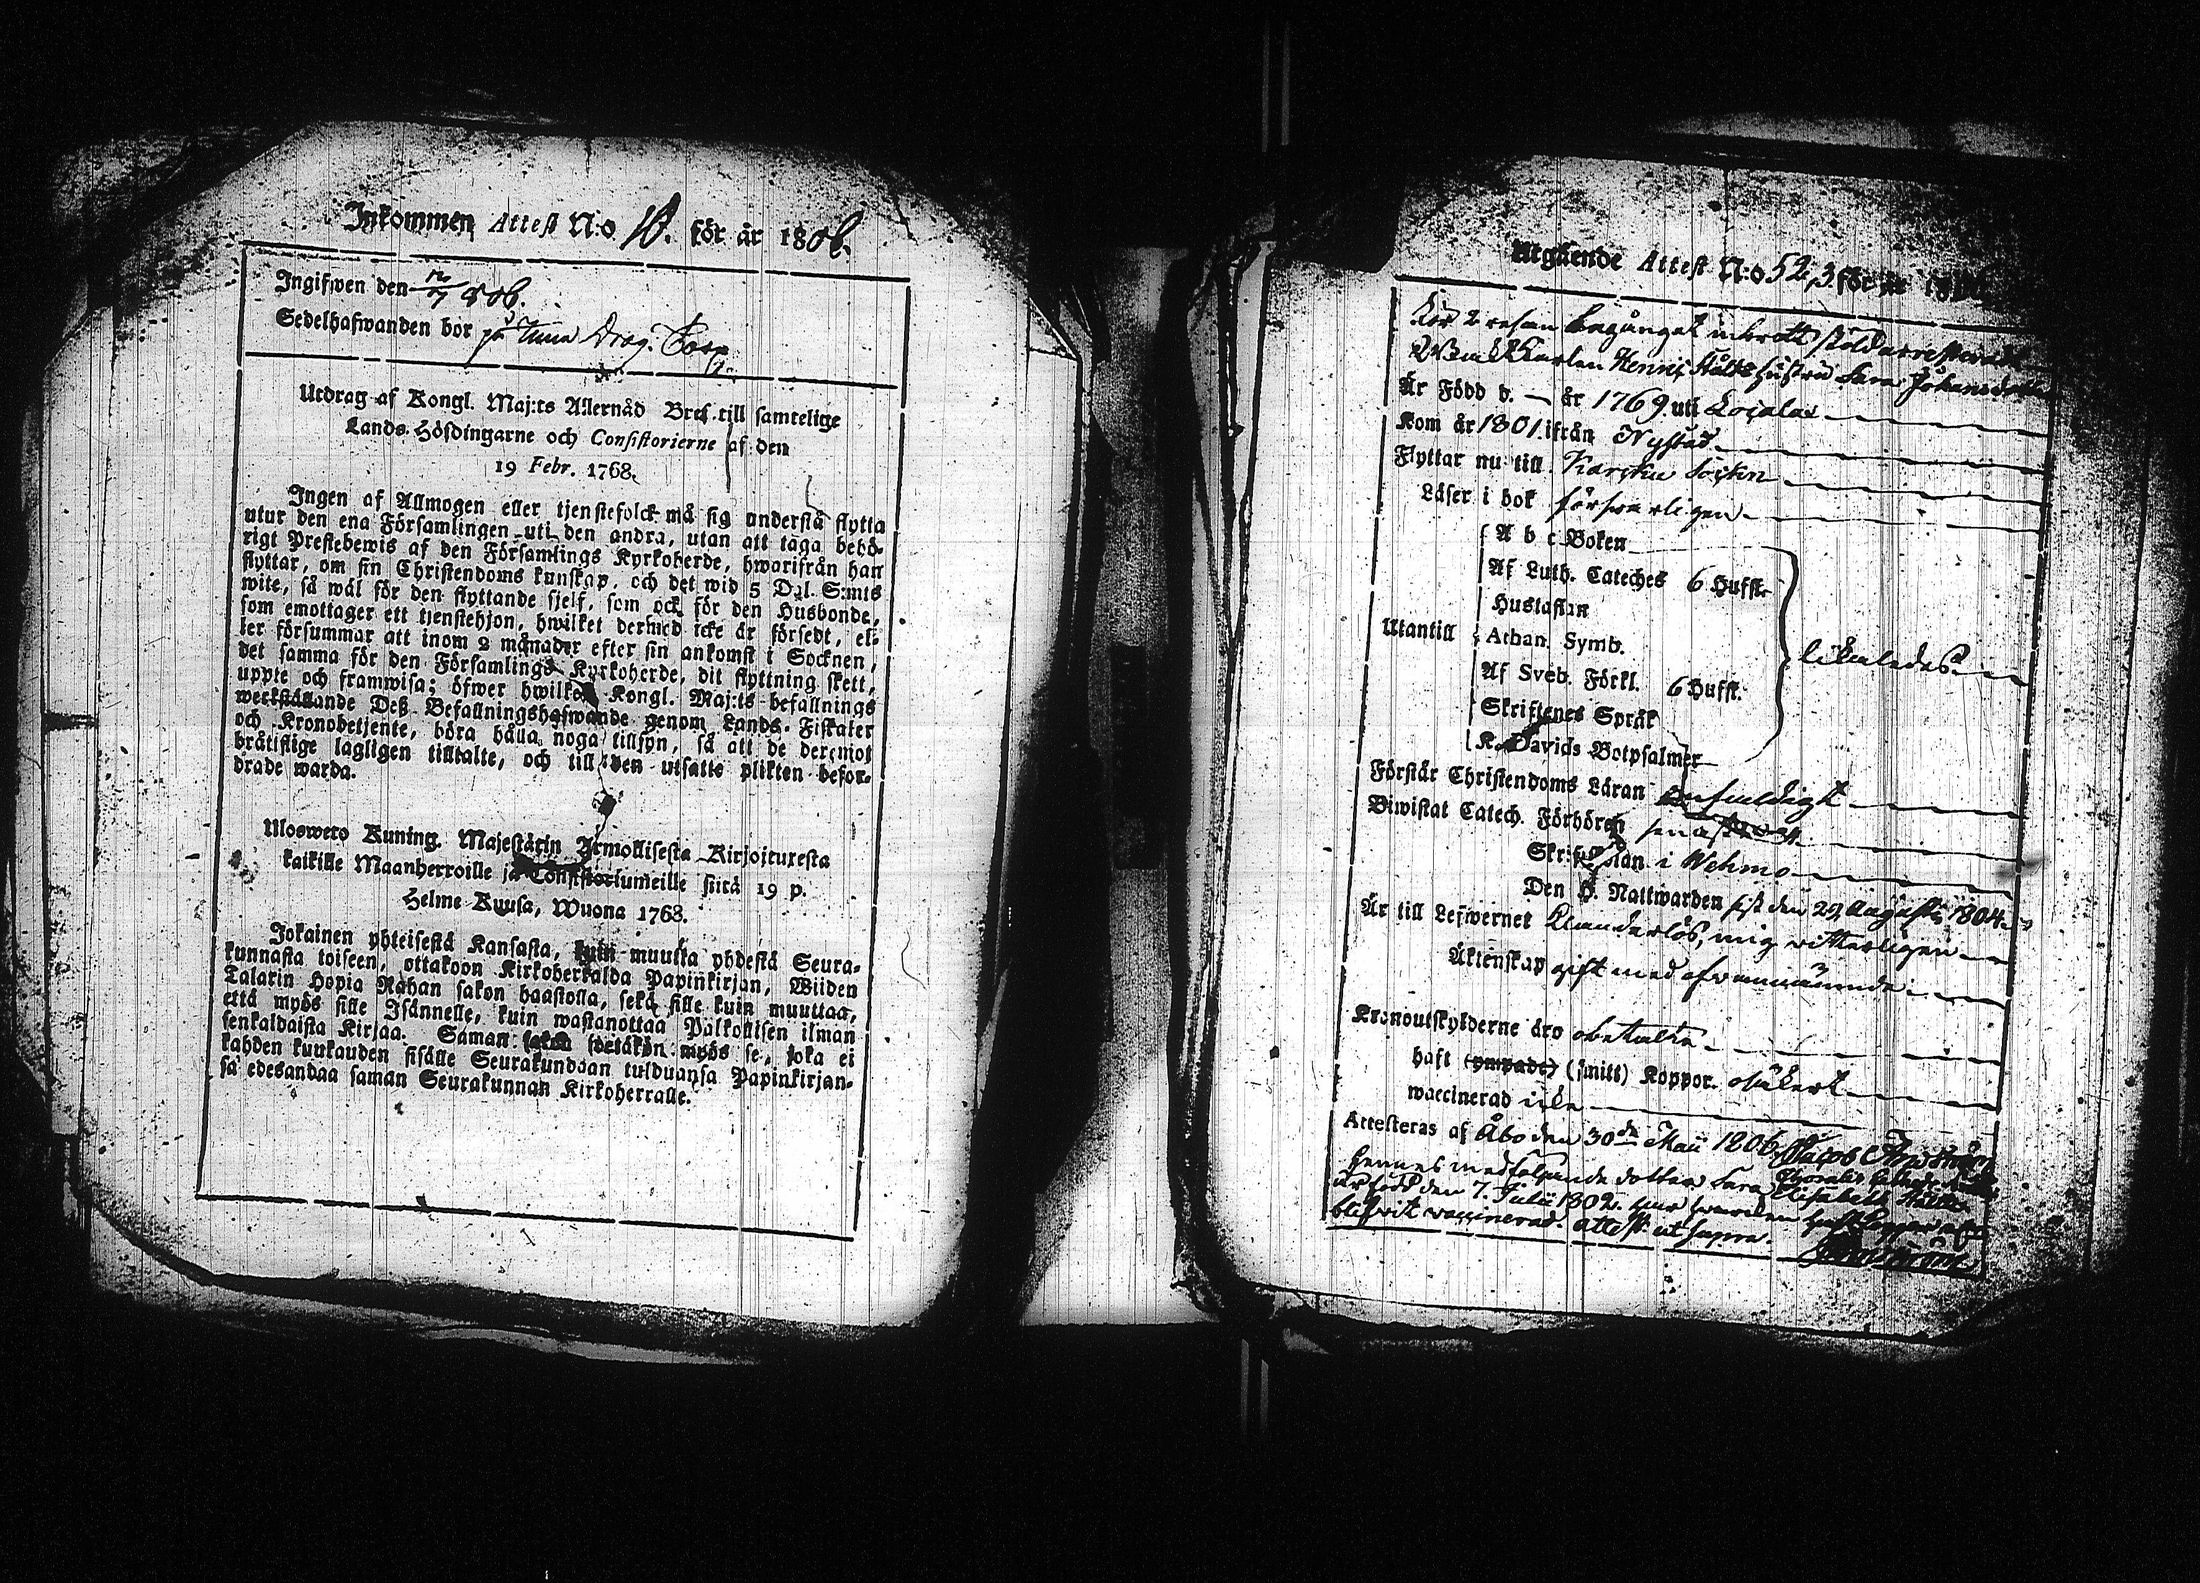 Inkommen Attest N:o 10. för år 1806.
Ingifwen den 12/7 806.
Sedelhafwanden bor på Drag. Torp
Utdrag af Kongl. Maj:ts Allernåd Bref till samtelige
Lands-Höfdingarne och Consistorierne af den
19 Febr. 1768.
Ingen af Allmogen eller tjenstefolck må sig understå flytta
utur den ena Församlingen uti den andra, utan att taga behö-
rigt Prestebewis af den Församlings Kyrkoherde, hwarifrån han
flyttar, om sin Christendoms kunskap, och det wid 5 Dal. S:mts
wite, så wäl för den flyttande sjelf, som ock för den Husbonde,
som emottager ett tjenstehjon, hwilket dermed icke är försedt, el-
ler försummar att inom 2 månader efter sin ankomst i Socknen,
det samma för den Församlings Kyrkoherde, dit flyttning skett,
uppte och framwisa; öfwer hwilket Kongl. Maj:ts befallnings
werkställande Deß Befallningshafwande genom Lands-Fiskaler
och Kronobetjente, böra hålla noga tillsyn, så att de deremot
bråtslige lagligen tilltalte, och till den utsatte plikten befor-
drade warda.
Ulosweto Kuning. Majestätin Armollisesta Kirjoituxesta
kaikille Maanherroille ja Consistoriumeille siitä 19 p.
Helme Kuusa, Wuona 1768.
Jokainen yhteisestä Kansasta, kuin muutta yhdestä Seura-
kunnasta toiseen, ottakoon Kirkoherralda Papinkirjan, Wiiden
Talarin Hopia Rahan sakon haastolla, sekä sille kuin muuttaa,
että myös sille Isännelle, kuin wastanottaa Palkollisen ilman
senkaldaista Kirjaa. Saman se, joka ei
kahden kuukauden sisälle Seurakundaan tulduansa Papinkirjan-
sa edesandaa saman Seurakunnan Kirkoherralle.
Utgående Attest N:o 52,3 för år
För 2 resan begånget inbrott stöld arresterade
Henric Ståhls hustru Sara Johansdotter
Är Född d. — år 1769 uti Localax
Kom år 1801 ifrån Nystad
Flyttar nu till Karcku Sockn
Läser i bok försvarligen
Utantill
A b c Boken
Af Luth. Cateches 6 Hufst.
Hustaflan
Athan. Symb.
Af Sveb. Förkl. 6 Hufst.
Skriftenes Språk
K. Davids Botpsalmer
likaledes
Förstår Christendoms Läran enfaldigt
Biwistat Catech. Förhören senast
Skriftskolan i Wehmo
Den H. Nattwarden sist den 29 Augusti 1804.
Är till Lefwernet klanderlös, mig vitterligen
Äktenskap gift med ofwannämnde
Kronoutskylderne äro obetalta
haft (ympade) (smitt) Koppor. osäkert
waccinerad icke
Attesteras af Åbo den 30de Maii 1806
Hennes medföljande dotter Sara Elisabeth
är född den 7. Julii 1802. har hwarken haft koppor eller
blifwit waccinerad. attest. ut supra.